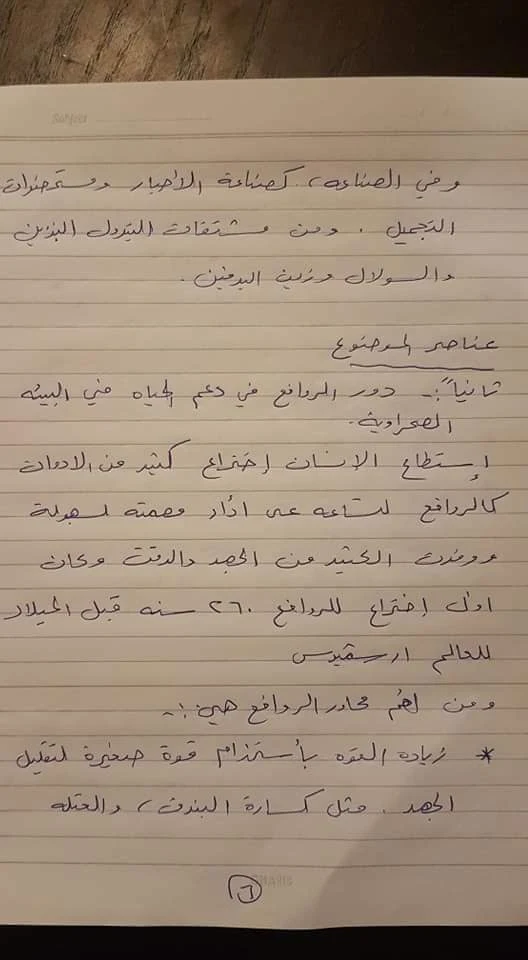 Subject
وفي الصناعه، كصناعة الأحبار ومستحضرات
التجميل . ومن مشتقات البترول البنزين
والسولار وزيت البرفين .
عناصر الموضوع
ثانياً :- دور الروافع في دعم الحياه في البيئه
الصحراوية .
إستطاع الإنسان إختراع كثير من الادوات
كالروافع لتساعه على اداء مهمته لسهولة
ووفرت الكثير من الجهد والوقت وكان
اول إختراع للروافع ٢٦٠ سنه قبل الميلاد
للعالم ارسقيدس
ومن اهم محاور الروافع هي :-
* زياده القوه بأستخدام قوة صغيرة لتقليل
الجهد . مثل كسارة البندق، والعتله
٦